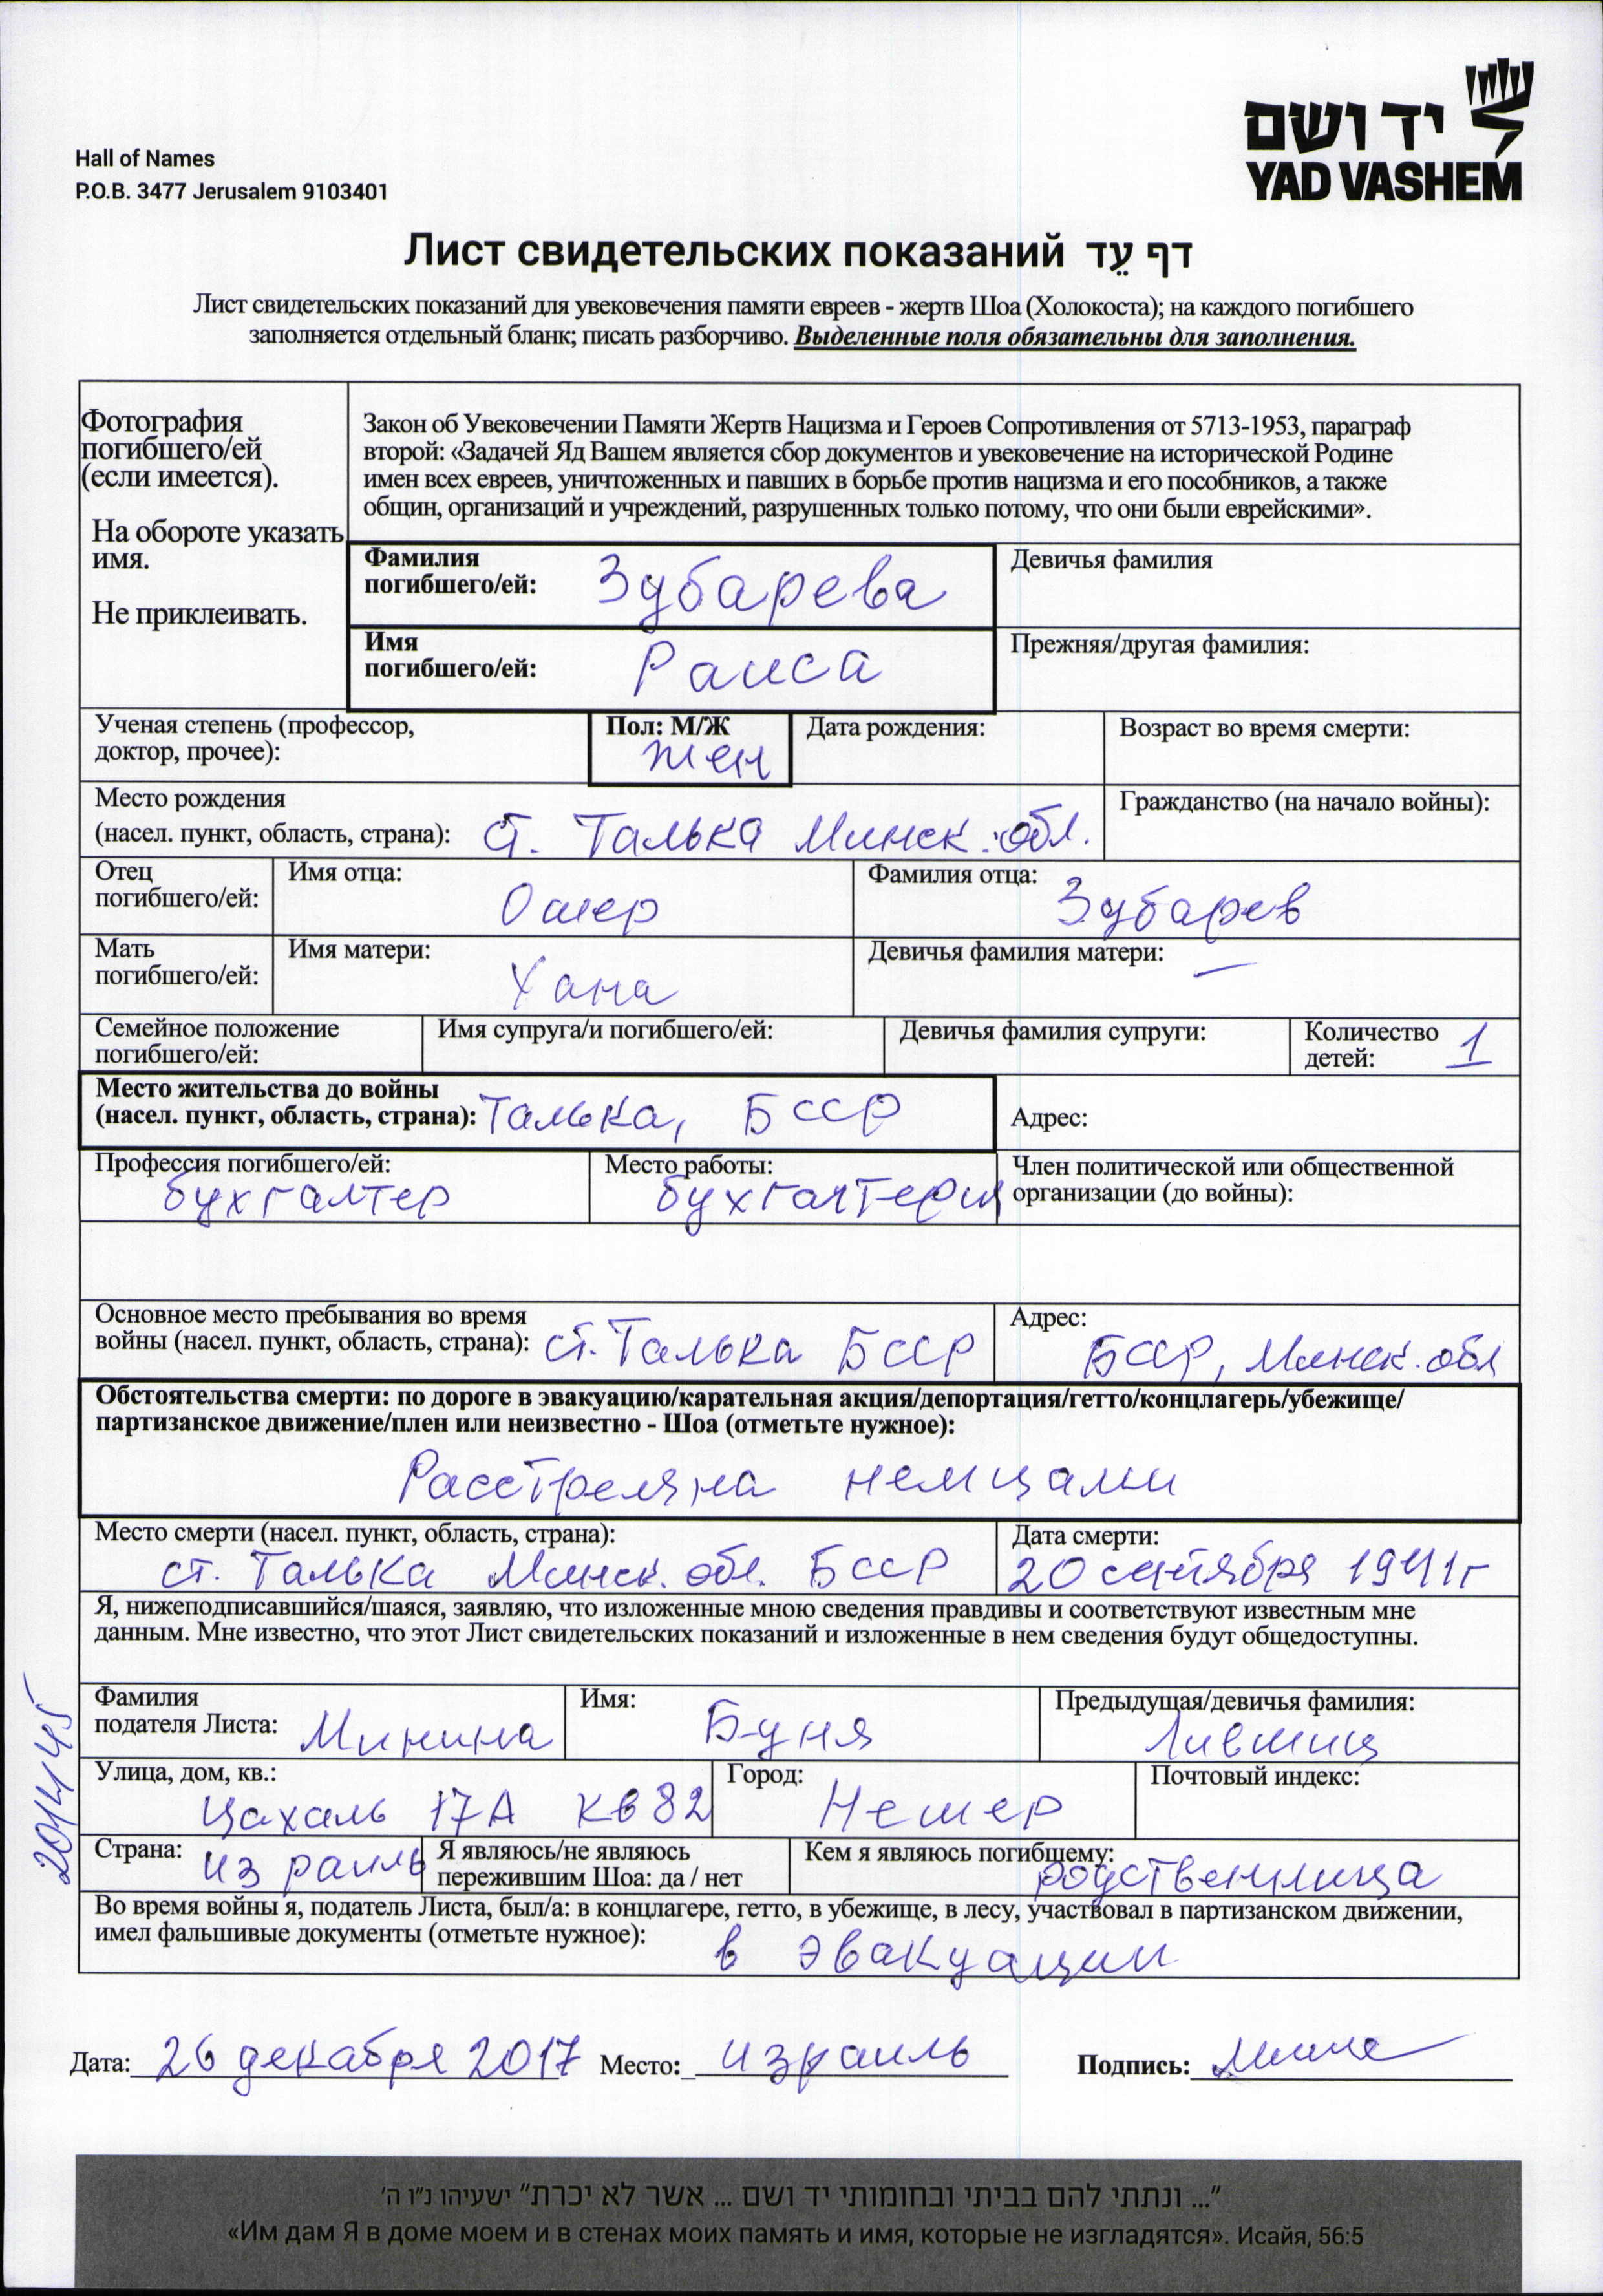 Hall of Names
P.O.B. 3477 Jerusalem 9103401
יד ושם
YAD VASHEM
Лист свидетельских показаний דף עֵד
Лист свидетельских показаний для увековечения памяти евреев - жертв Шоа (Холокоста); на каждого погибшего
заполняется отдельный бланк; писать разборчиво. Выделенные поля обязательны для заполнения.
Фотография
погибшего/ей
(если имеется).
На обороте указать
имя.
Не приклеивать.
Закон об Увековечении Памяти Жертв Нацизма и Героев Сопротивления от 5713-1953, параграф
второй: «Задачей Яд Вашем является сбор документов и увековечение на исторической Родине
имен всех евреев, уничтоженных и павших в борьбе против нацизма и его пособников, а также
общин, организаций и учреждений, разрушенных только потому, что они были еврейскими».
Фамилия
погибшего/ей: Зубарева
Девичья фамилия
Имя
погибшего/ей: Раиса
Прежняя/другая фамилия:
Ученая степень (профессор,
доктор, прочее):
Пол: М/Ж
жен
Дата рождения:
Возраст во время смерти:
Место рождения
(насел. пункт, область, страна): ст. Талька Минск. обл.
Гражданство (на начало войны):
Отец
погибшего/ей:
Имя отца:
Ошер
Фамилия отца:
Зубарев
Мать
погибшего/ей:
Имя матери:
Хана
Девичья фамилия матери: —
Семейное положение
погибшего/ей:
Имя супруга/и погибшего/ей:
Девичья фамилия супруги:
Количество
детей: 1
Место жительства до войны
(насел. пункт, область, страна): Талька, БССР
Адрес:
Профессия погибшего/ей:
бухгалтер
Место работы:
бухгалтерия
Член политической или общественной
организации (до войны):
Основное место пребывания во время
войны (насел. пункт, область, страна): ст. Талька БССР
Адрес:
БССР, Минск. обл
Обстоятельства смерти: по дороге в эвакуацию/карательная акция/депортация/гетто/концлагерь/убежище/
партизанское движение/плен или неизвестно - Шоа (отметьте нужное):
Расстреляна немцами
Место смерти (насел. пункт, область, страна):
ст. Талька Минск. обл. БССР
Дата смерти:
20 сентября 1941г
Я, нижеподписавшийся/шаяся, заявляю, что изложенные мною сведения правдивы и соответствуют известным мне
данным. Мне известно, что этот Лист свидетельских показаний и изложенные в нем сведения будут общедоступны.
Фамилия
подателя Листа: Минина
Имя:
Буня
Предыдущая/девичья фамилия:
Лившиц
Улица, дом, кв.:
Цахаль 17А кв 82
Город:
Нешер
Почтовый индекс:
Страна: израиль
Я являюсь/не являюсь
пережившим Шоа: да / нет
Кем я являюсь погибшему:
родственница
Во время войны я, податель Листа, был/а: в концлагере, гетто, в убежище, в лесу, участвовал в партизанском движении,
имел фальшивые документы (отметьте нужное): в эвакуации
Дата: 26 декабря 2017 Место: израиль Подпись:
"... ונתתי להם בביתי ובחומותי יד ושם ... אשר לא יכרת" ישעיהו נ"ו ה'
«Им дам Я в доме моем и в стенах моих память и имя, которые не изгладятся». Исайя, 56:5